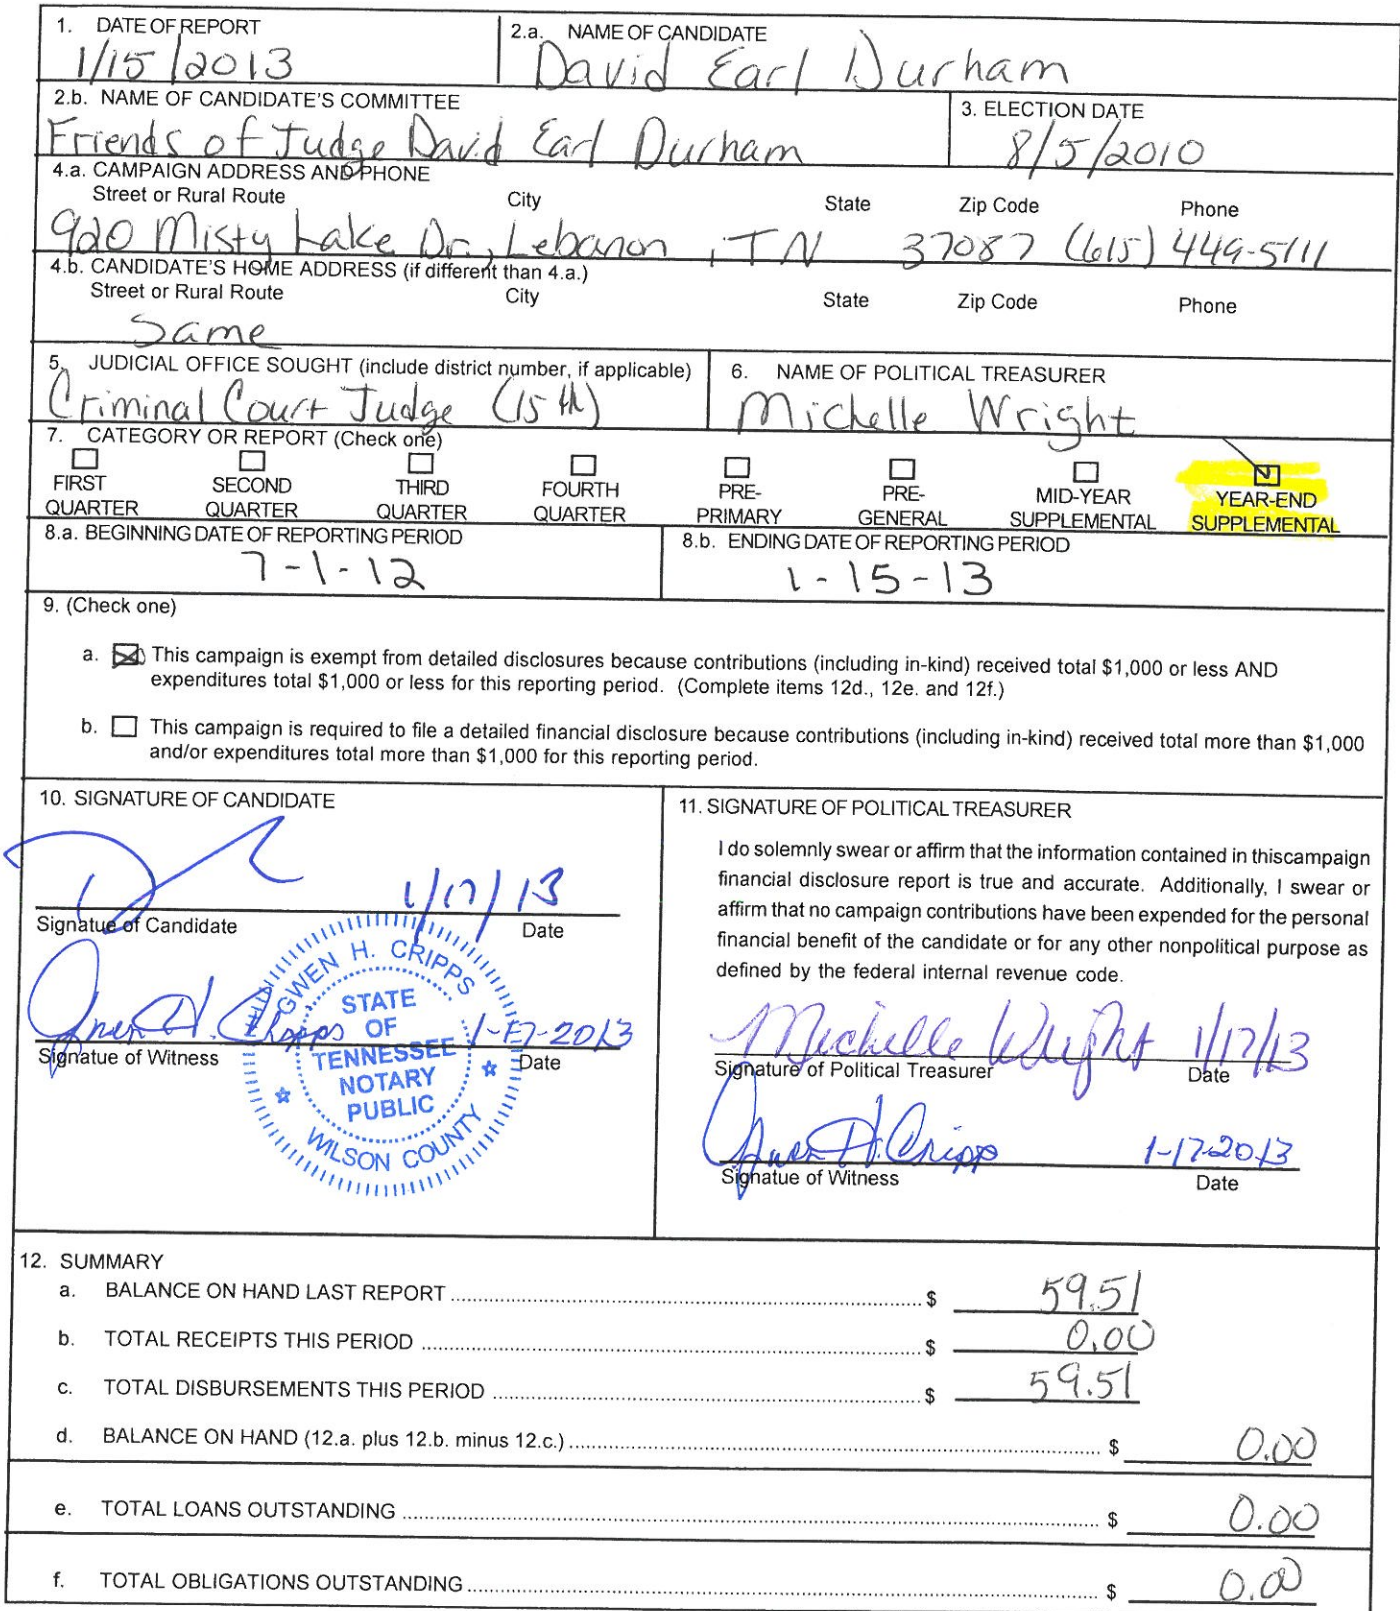 1. DATE OF REPORT
1/15/2013
2.a. NAME OF CANDIDATE
David Earl Durham
2.b. NAME OF CANDIDATE'S COMMITTEE
Friends of Judge David Earl Durham
3. ELECTION DATE
8/5/2010
4.a. CAMPAIGN ADDRESS AND PHONE
Street or Rural Route City State Zip Code Phone
920 Misty Lake Dr., Lebanon, TN 37087 (615) 449-5111
4.b. CANDIDATE'S HOME ADDRESS (if different than 4.a.)
Street or Rural Route City State Zip Code Phone
Same
5. JUDICIAL OFFICE SOUGHT (include district number, if applicable)
Criminal Court Judge (15th)
6. NAME OF POLITICAL TREASURER
Michelle Wright
7. CATEGORY OR REPORT (Check one)
FIRST QUARTER
SECOND QUARTER
THIRD QUARTER
FOURTH QUARTER
PRE-PRIMARY
PRE-GENERAL
MID-YEAR SUPPLEMENTAL
YEAR-END SUPPLEMENTAL
8.a. BEGINNING DATE OF REPORTING PERIOD
7-1-12
8.b. ENDING DATE OF REPORTING PERIOD
1-15-13
9. (Check one)
a. This campaign is exempt from detailed disclosures because contributions (including in-kind) received total $1,000 or less AND
expenditures total $1,000 or less for this reporting period. (Complete items 12d., 12e. and 12f.)
b. This campaign is required to file a detailed financial disclosure because contributions (including in-kind) received total more than $1,000
and/or expenditures total more than $1,000 for this reporting period.
10. SIGNATURE OF CANDIDATE
1/17/13
Signatue of Candidate Date
Gwen H. Cripps 1-17-2013
Signatue of Witness Date
GWEN H. CRIPPS
STATE
OF
TENNESSEE
NOTARY
PUBLIC
WILSON COUNTY
11. SIGNATURE OF POLITICAL TREASURER
I do solemnly swear or affirm that the information contained in thiscampaign
financial disclosure report is true and accurate. Additionally, I swear or
affirm that no campaign contributions have been expended for the personal
financial benefit of the candidate or for any other nonpolitical purpose as
defined by the federal internal revenue code.
Michelle Wright 1/17/13
Signature of Political Treasurer Date
Gwen H. Cripps 1-17-2013
Signatue of Witness Date
12. SUMMARY
a. BALANCE ON HAND LAST REPORT $ 59.51
b. TOTAL RECEIPTS THIS PERIOD $ 0.00
c. TOTAL DISBURSEMENTS THIS PERIOD $ 59.51
d. BALANCE ON HAND (12.a. plus 12.b. minus 12.c.) $ 0.00
e. TOTAL LOANS OUTSTANDING $ 0.00
f. TOTAL OBLIGATIONS OUTSTANDING $ 0.00